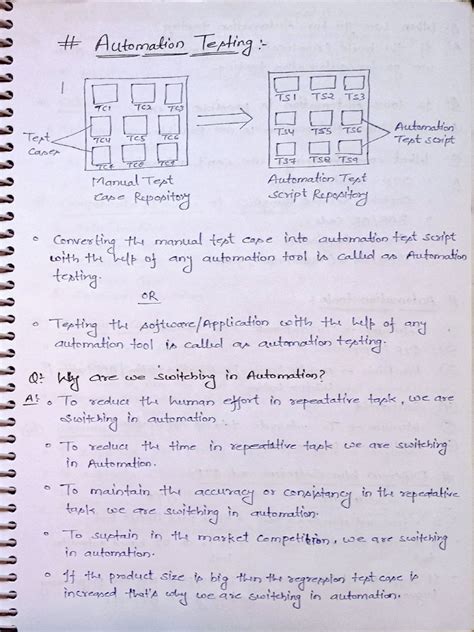 # Automation Testing:-
TC1 TC2 TC3
TC4 TC5 TC6
TC7 TC8 TC9
Test Cases
Manual Test
Case Repository
TS1 TS2 TS3
TS4 TS5 TS6
TS7 TS8 TS9
Automation
Test script
Automation Test
script Repository
Converting the manual test case into automation test script
with the help of any automation tool is called as Automation
testing.
OR
Testing the software/Application with the help of any
automation tool is called as automation testing.
Q: Why are we switching in Automation?
A: To reduce the human effort in repeatative task, we are
switching in automation.
To reduce the time in repeatative task we are switching
in Automation.
To maintain the accuracy or consistancy in the repeatative
task we are switching in automation.
To sustain in the market competition, we are switching
in automation.
If the product size is big then the regression test case is
increased that's why we are switching in automation.